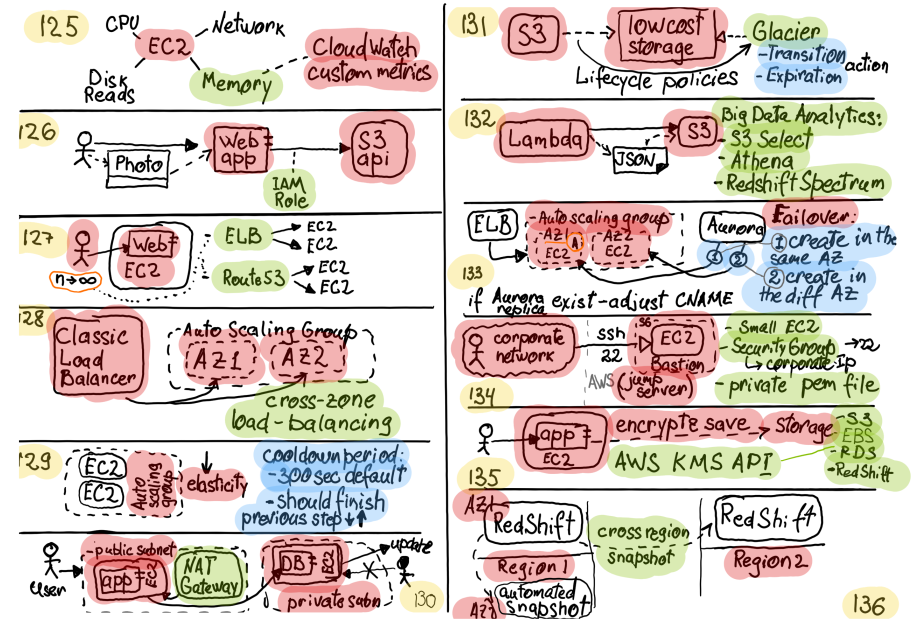 125
CPU
Network
EC2
Disk
Reads
Memory
CloudWatch
custom metrics
126
Photo
Web
app
S3
api
IAM
Role
127
n→∞
Web
EC2
ELB
EC2
EC2
Route53
EC2
EC2
28
Classic
Load
Balancer
Auto Scaling Group
AZ1
AZ2
cross-zone
load-balancing
29
EC2
EC2
Auto
scaling
group
elasticity
cooldown period:
-300 sec default
-should finish
previous step ↓↑
User
-public subnet
app
EC2
NAT
Gateway
DB
EC2
update
private subn
130
131
S3
low cost
storage
Glacier
-Transition
-Expiration
action
Lifecycle policies
132
Lambda
JSON
S3
Big Data Analytics:
-S3 Select
-Athena
-Redshift Spectrum
133
ELB
-Auto scaling group
AZ1
A
EC2
AZ2
EC2
Aurora
1
2
Failover:
1 create in the
same AZ
2 create in
the diff AZ
if Aurora
replica exist-adjust CNAME
134
corporate
network
ssh
22
AWS
SG
EC2
Bastion
(jump
server)
-Small EC2
-Security Group →22
↳ corporate Ip
-private pem file
135
app
EC2
encrypt & save
storage
-S3
EBS
-RDS
-RedShift
AWS KMS API
136
AZ1
RedShift
Region 1
automated
snapshot
AZ2
cross region
snapshot
RedShift
Region 2